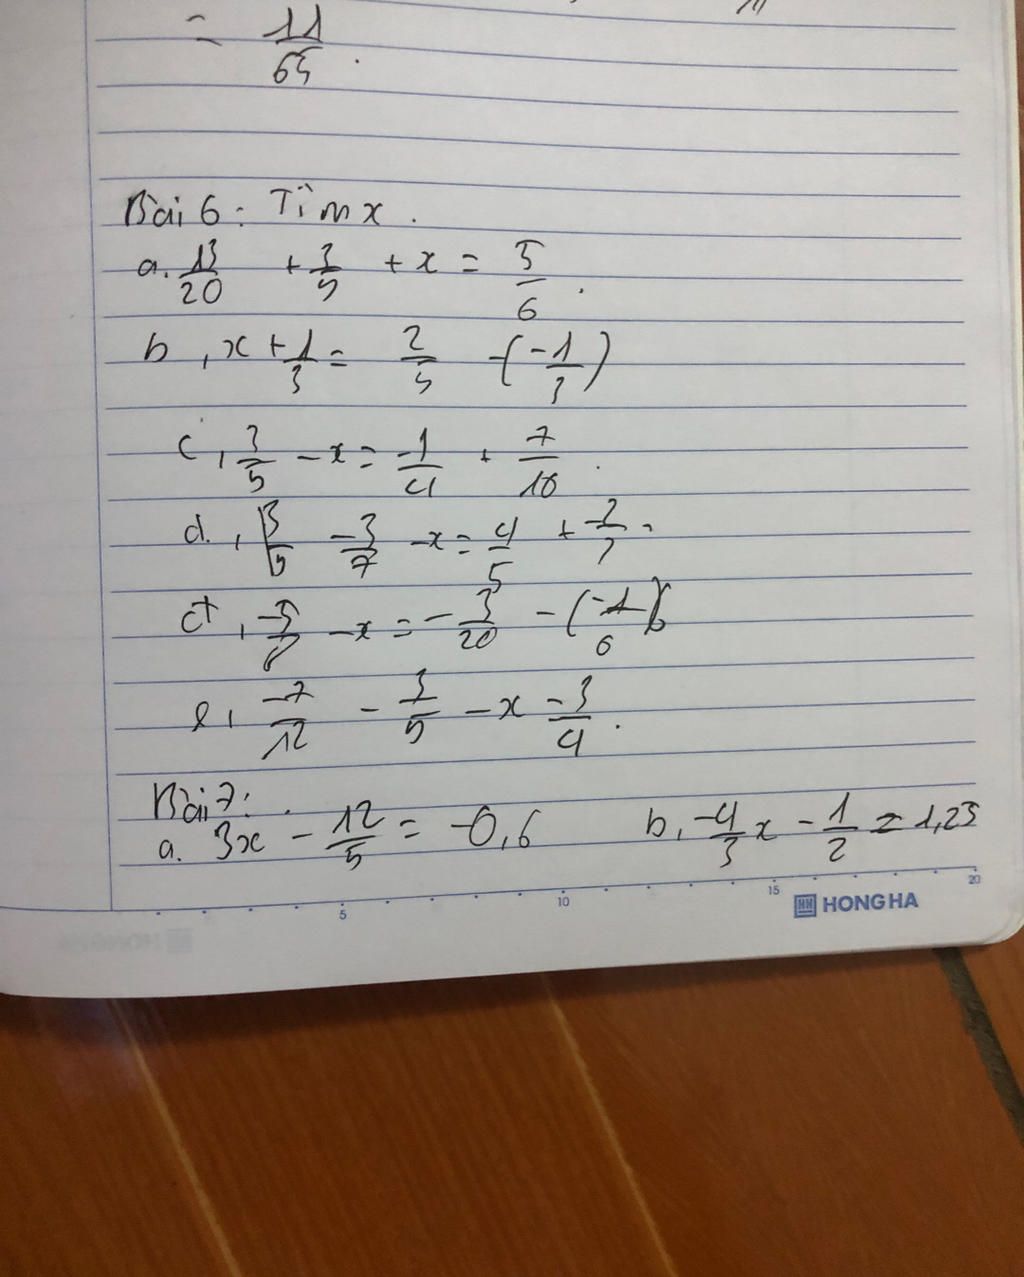 = 11/65.
Bài 6: Tìm x.
a. 13/20 + 3/5 + x = 5/6.
b, x + 1/3 = 2/5 - (-1/3)
c, 3/5 - x = -1/4 + 7/10.
d., 3/5 -3/7 -x = 4/5 +
đ, -5/8 - x = -3/20 - (-1/6)
e, -7/12 - 3/5 - x -3/4.
Bài 7:
a. 3x - 12/5 = -0,6 b, -4/3 x - 1/2 = 1,25
5 10 15 20
HONG HA